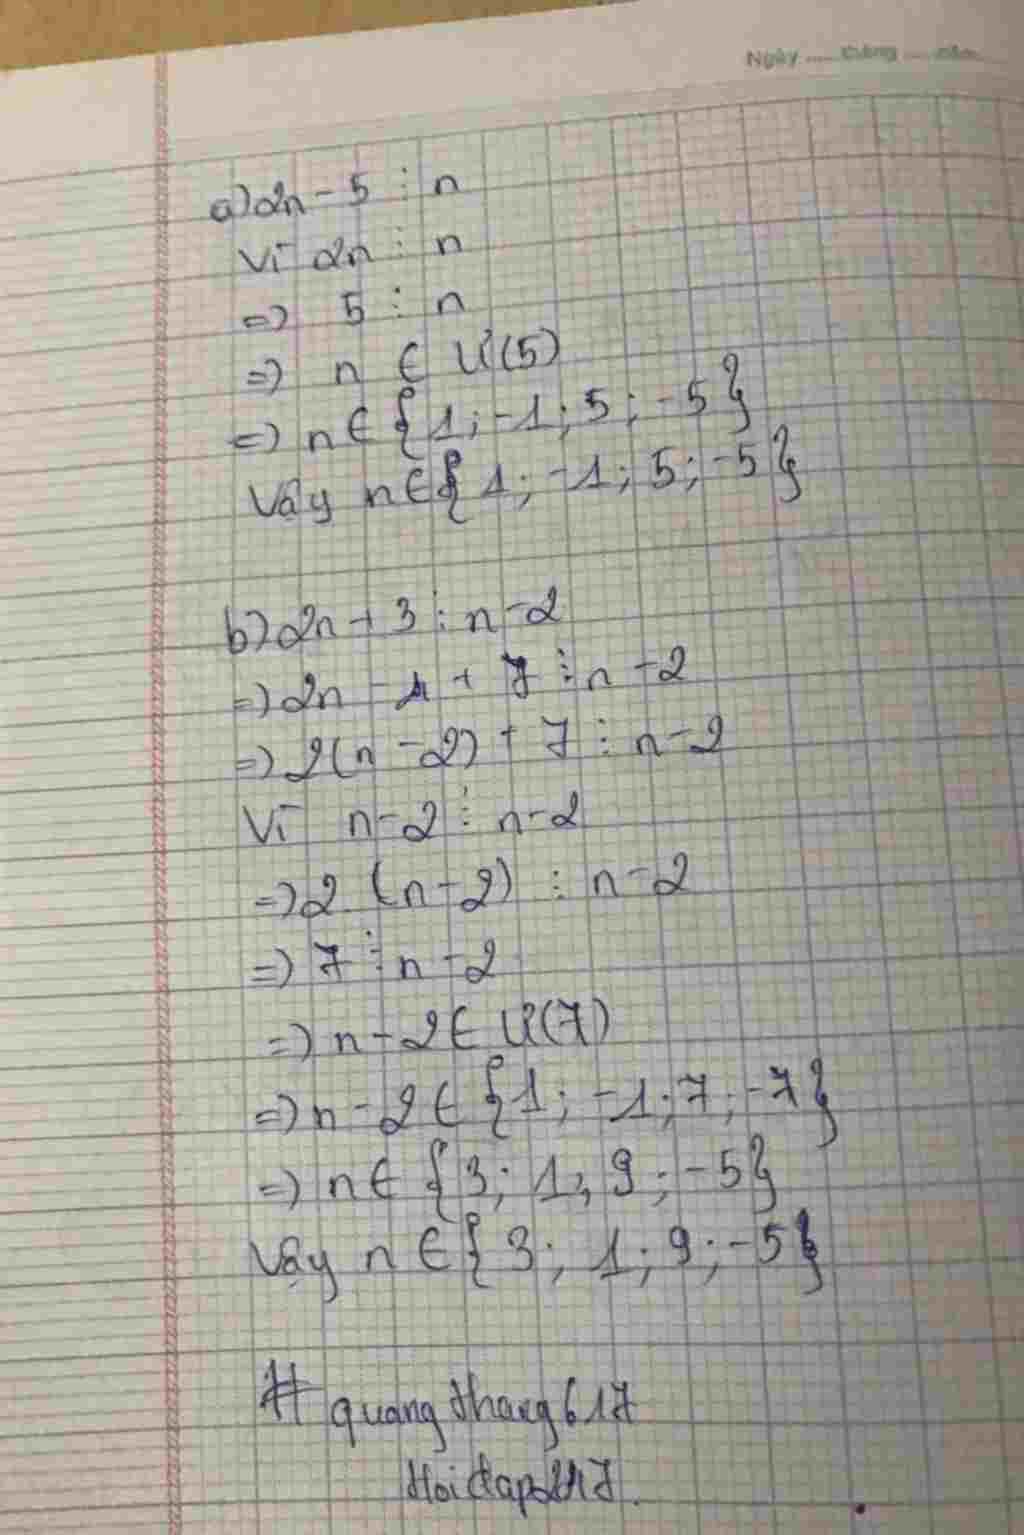 Ngày ..... tháng ..... năm
a) 2n - 5 ⋮ n
Vì 2n ⋮ n
=> 5 ⋮ n
=> n ∈ Ư(5)
=> n ∈ {1; -1; 5; -5}
Vậy n ∈ {1; -1; 5; -5}
b) 2n + 3 ⋮ n - 2
=> 2n - 4 + 7 ⋮ n - 2
=> 2(n - 2) + 7 ⋮ n - 2
Vì n - 2 ⋮ n - 2
=> 2 (n - 2) ⋮ n - 2
=> 7 ⋮ n - 2
=> n - 2 ∈ Ư(7)
=> n - 2 ∈ {1; -1; 7; -7}
=> n ∈ {3; 1; 9; -5}
Vậy n ∈ {3; 1; 9; -5}
# quangthang617
Hoidap247.